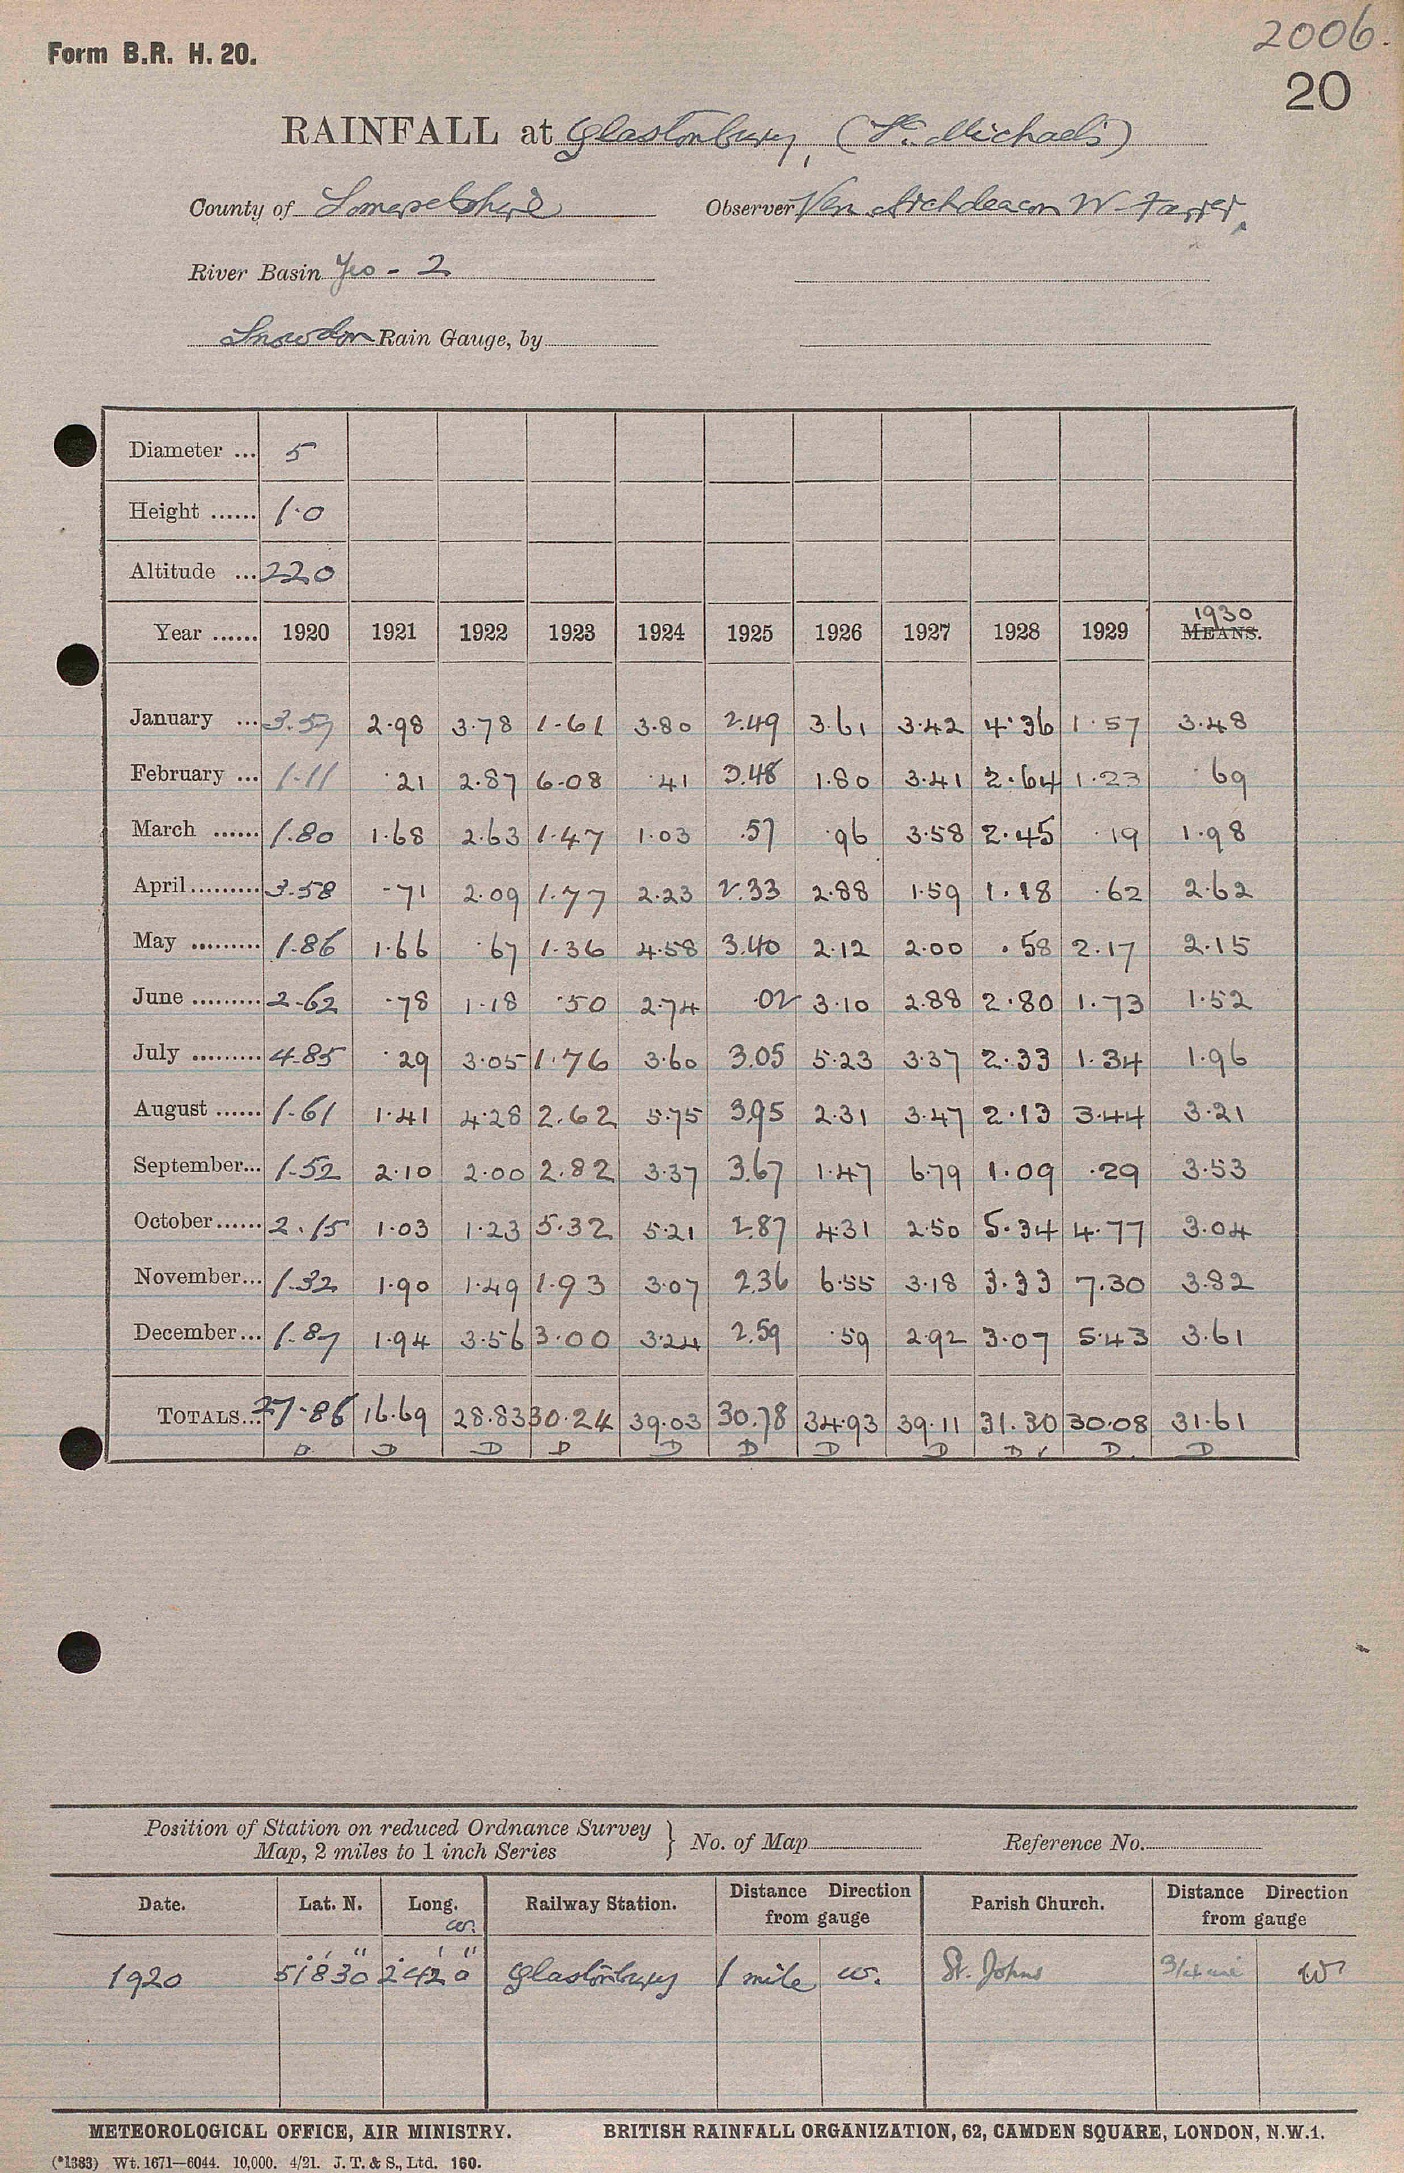 2006.
Form B.R. H. 20.
20
RAINFALL at Glastonbury, (St. Michael's)
County of Somersetshire Observer Ven Archdeacon W Farrer,
River Basin Yeo - 2
Snowdon Rain Gauge, by
Diameter ... 5
Height ...... 1.0
Altitude ... 220
1930
Year ...... 1920 1921 1922 1923 1924 1925 1926 1927 1928 1929 MEANS.
January ... 3.57 2.98 3.78 1.61 3.80 2.49 3.61 3.42 4.36 1.57 3.48
February ... 1.11 .21 2.87 6.08 .41 3.48 1.80 3.41 2.64 1.23 .69
March ...... 1.80 1.68 2.63 1.47 1.03 .57 .96 3.58 2.45 .19 1.98
April ......... 3.58 .71 2.09 1.77 2.23 2.33 2.88 1.59 1.18 .62 2.62
May ......... 1.86 1.66 .67 1.36 4.58 3.40 2.12 2.00 .58 2.17 2.15
June ......... 2.62 .78 1.18 .50 2.74 .02 3.10 2.88 2.80 1.73 1.52
July ......... 4.85 .29 3.05 1.76 3.60 3.05 5.23 3.37 2.33 1.34 1.96
August ...... 1.61 1.41 4.28 2.62 5.75 3.95 2.31 3.47 2.13 3.44 3.21
September... 1.52 2.10 2.00 2.82 3.37 3.67 1.47 6.79 1.09 .29 3.53
October...... 2.15 1.03 1.23 5.32 5.21 2.87 4.31 2.50 5.34 4.77 3.04
November... 1.32 1.90 1.49 1.93 3.07 2.36 6.55 3.18 3.33 7.30 3.82
December... 1.87 1.94 3.56 3.00 3.24 2.59 .59 2.92 3.07 5.43 3.61
TOTALS... 27.86 16.69 28.83 30.24 39.03 30.78 34.93 39.11 31.30 30.08 31.61
D D D D D D D D D ✓ D. D
Position of Station on reduced Ordnance Survey
Map, 2 miles to 1 inch Series } No. of Map Reference No.
Date. Lat. N. Long. W. Railway Station. Distance Direction from gauge Parish Church. Distance Direction from gauge
1920 51° 8' 30" 2° 42' 0" Glastonbury 1 mile W. St. Johns 3/4 mile W
METEOROLOGICAL OFFICE, AIR MINISTRY. BRITISH RAINFALL ORGANIZATION, 62, CAMDEN SQUARE, LONDON, N.W.1.
(*1383) Wt. 1671—6044. 10,000. 4/21. J. T. & S., Ltd. 160.